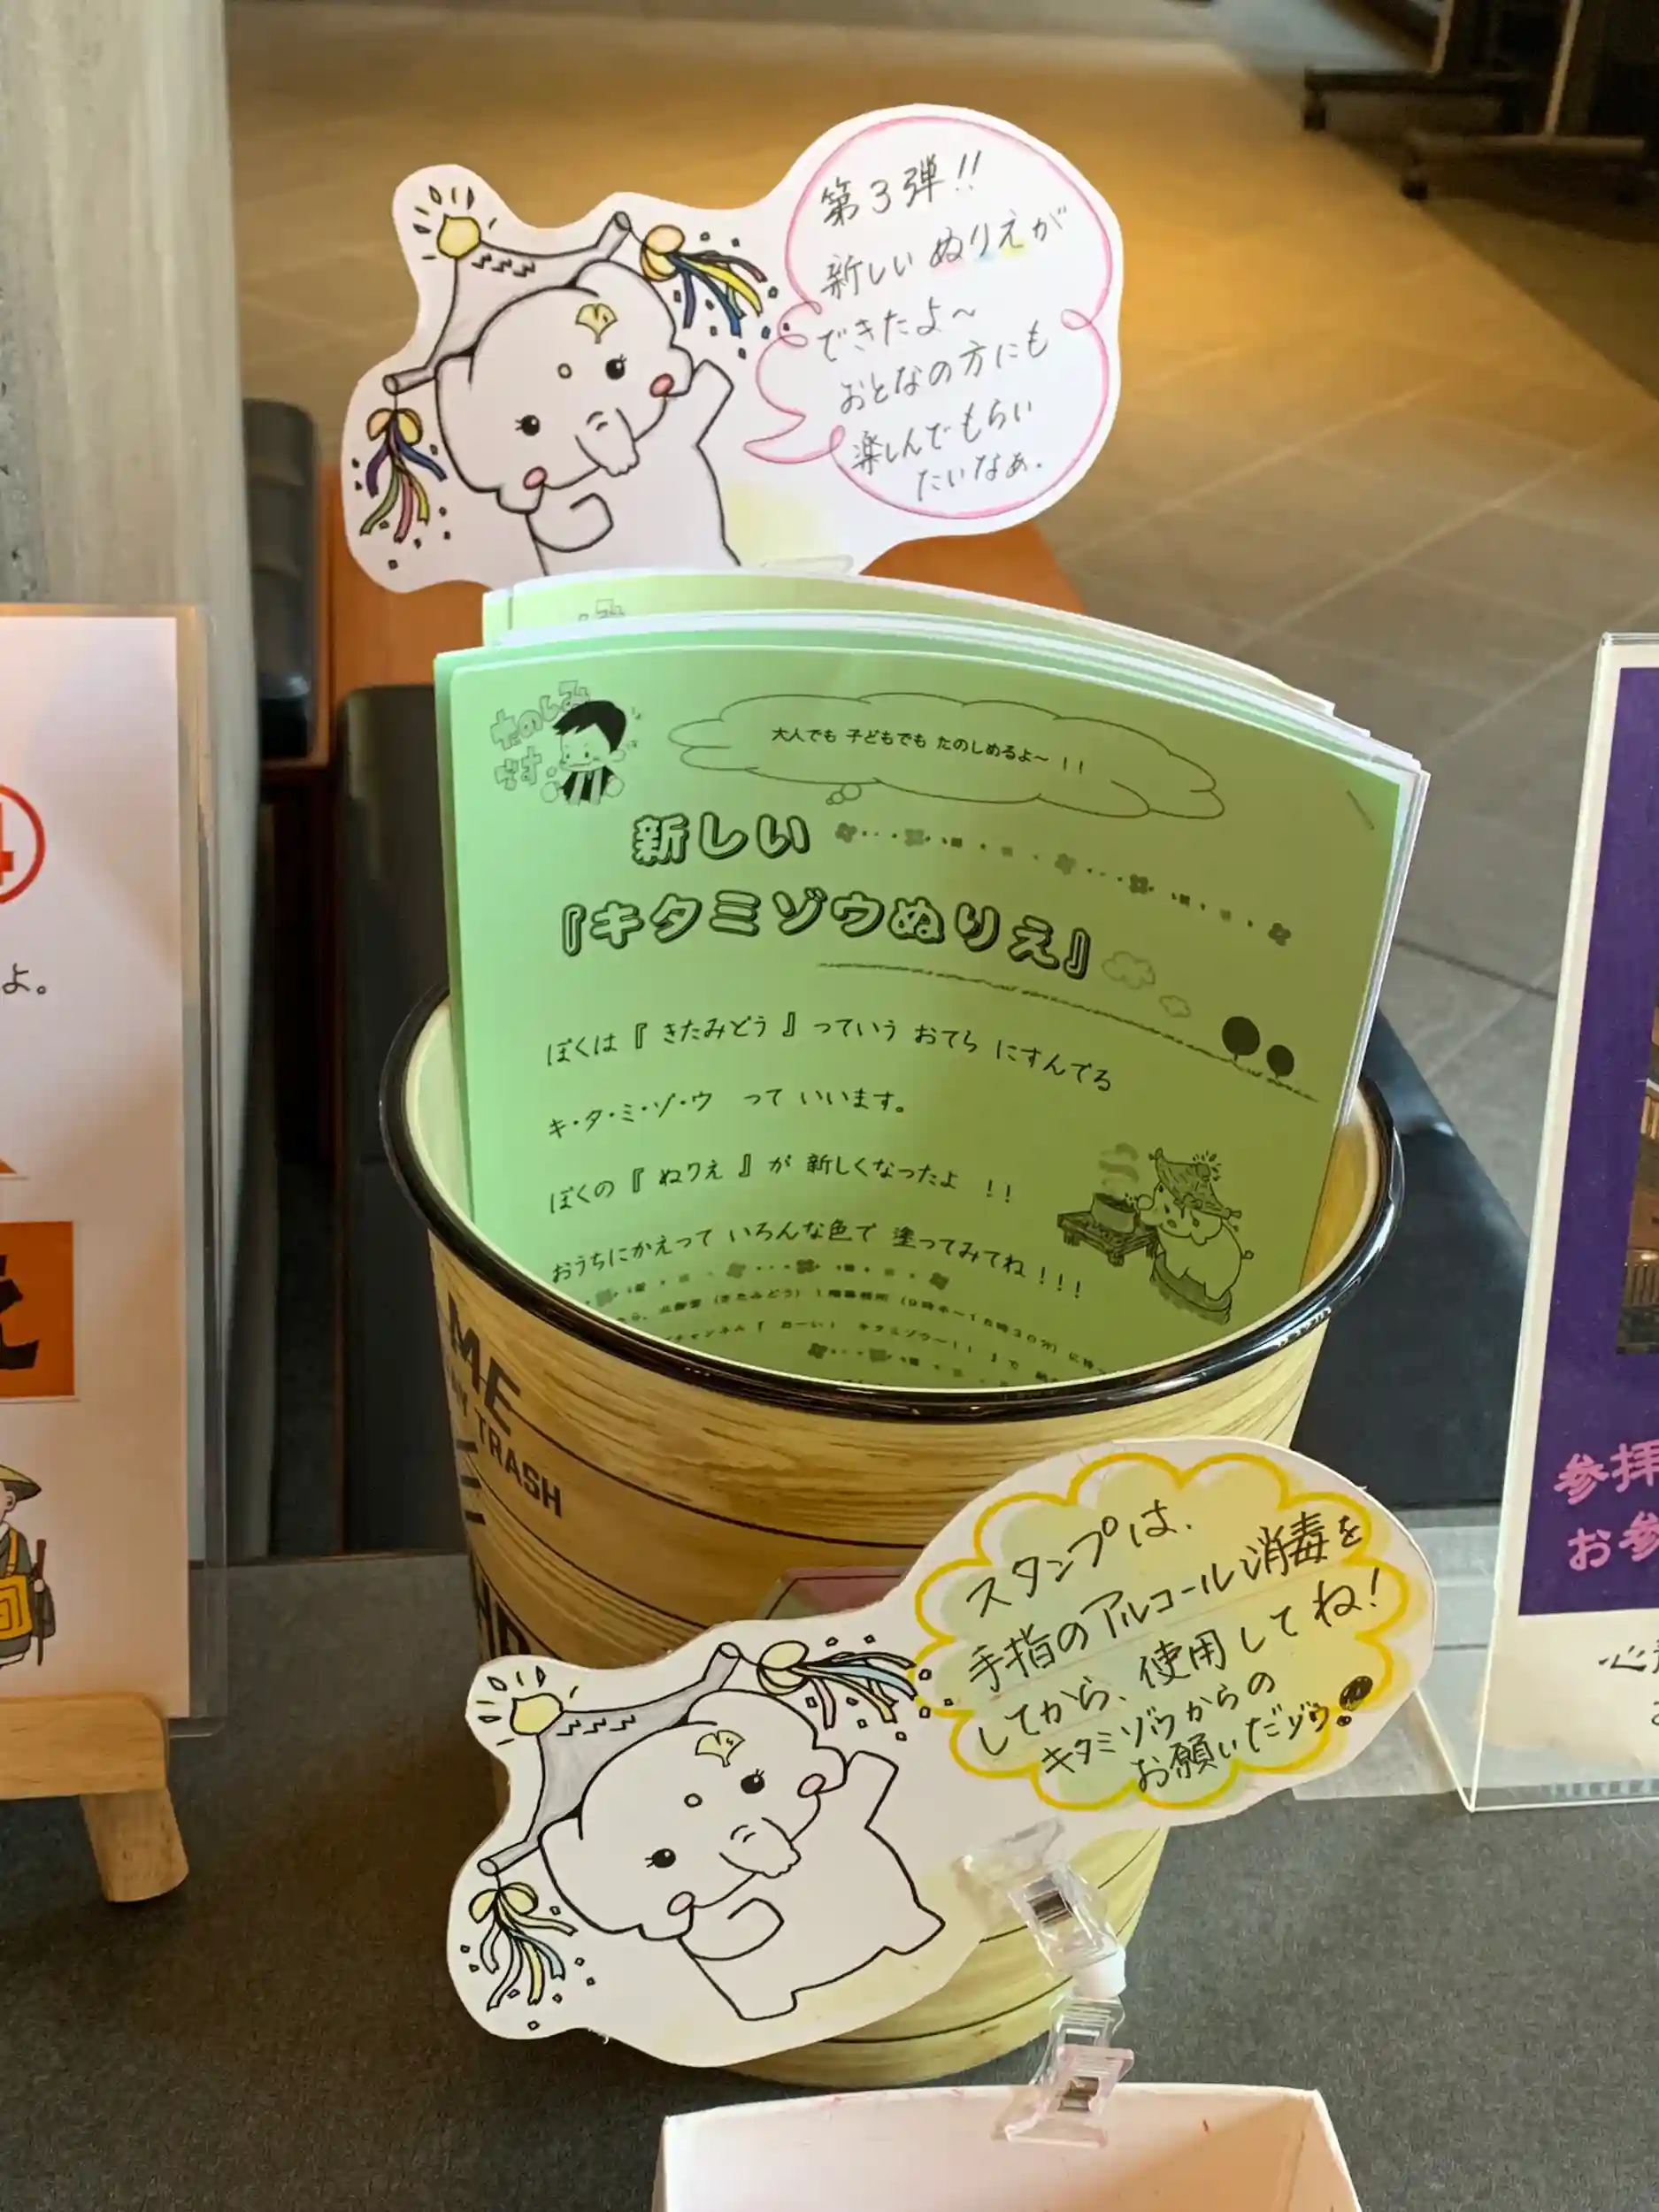 第3弾!!
新しいぬりえが
できたよ～
おとなの方にも
楽しんでもらい
たいなぁ.
たのしみ
です
大人でも 子どもでも たのしめるよ～ !!
新しい
『キタミゾウぬりえ』
ぼくは『 きたみどう 』っていう おてら にすんでる
キ・タ・ミ・ゾ・ウ って いいます。
ぼくの『 ぬりえ 』が 新しくなったよ !!
おうちにかえって いろんな色で 塗ってみてね!!!
(きたみどう) 1階事務所 (9時半～16時30分) に
チャンネル「 おーい! キタミゾウ～!! 」で
ME
TRASH
スタンプは、
手指のアルコール消毒を
してから、使用してね!
キタミゾウからの
お願いだゾウ!
4
よ。
参拝
お参
心